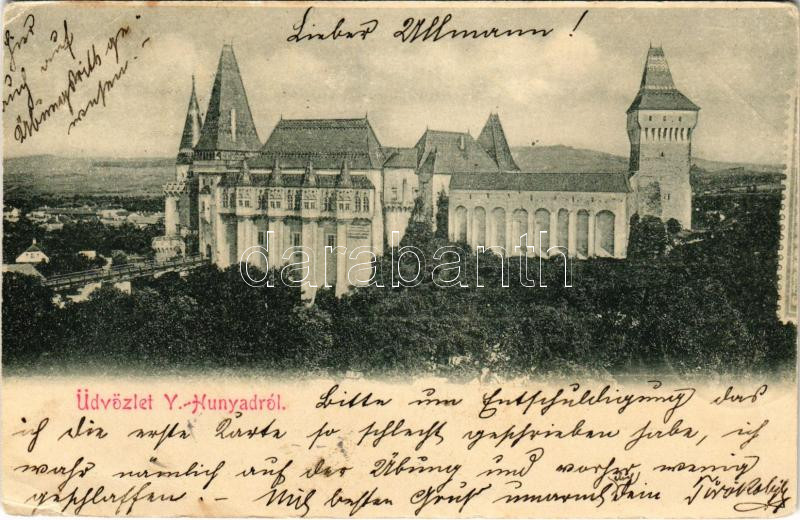 Lieber Ullmann!
Hier
auch auf
Übungsritts ge
wesen.-
darabanth
Üdvözlet V.-Hunyadról.
Bitte um Entschuldigung das
ich die erste Karte so schlecht geschrieben habe, ich
wahr nämlich auf der Übung und vorher wenig
geschlaffen.- Mit besten Gruß umarmt Dein